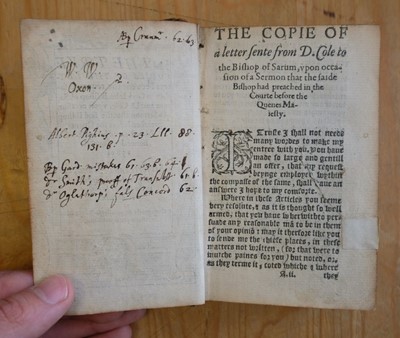 Bp Cranm. 62. 63
W. W
Oxon. 2.
Albert Pighius. p. 23. L ll. 88.
131. b.
Bp Gard mistakes 61. 63. b. 64. b
Dr Smith's proof of Transubst 61. b.
Dr Oglethorp's fals Concord 62.
THE COPIE OF
a letter sente from D. Cole to
the Bishop of Sarum, vpon occa-
sion of a Sermon that the saide
Bishop had preached in the
Courte before the
Quenes Ma-
iesty.
I Truste I shall not nede
many wordes to make my
mattree with you, you haue
made so large and gentill
an offer, that any request
brynge employer within
the compasse of the same, shall haue an
answere I hope to my comforte.
Where in these Articles you seeme
very resolute, & as it is thought so well
armed, that you haue wherwith to per-
suade any reasonable mā to be in them
of your opiniō: may it therefore like you
to sende me the chiefe places, in these
matters not wholly writen, (for that were to
mutche paines for you) but noted, or
as they terme it, coted whiche & where
A.ii. they